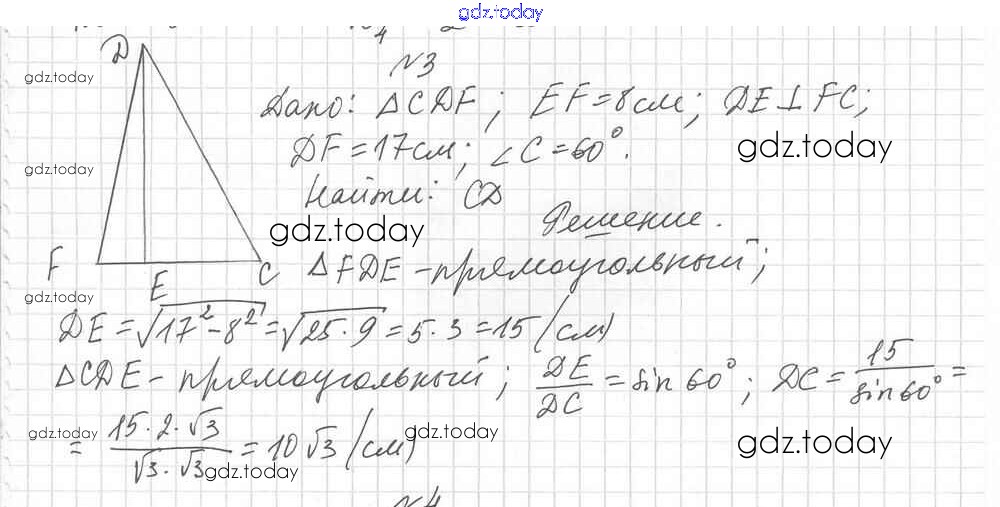 gdz.today
№3
D
gdz.today
Дано: △CDF; EF=8см; DE⊥FC;
DF=17см; ∠C=60°.
gdz.today
gdz.today
Найти: CD
gdz.today
Решение.
F E C
△FDE – прямоугольный;
gdz.today
DE=√17²-8²=√25·9=5·3=15 (см)
△CDE – прямоугольный; DE/DC = sin 60°; DC = 15/sin 60° =
= 15·2·√3/√3·√3 = 10√3 (см)
gdz.today
gdz.today
gdz.today
gdz.today
№4